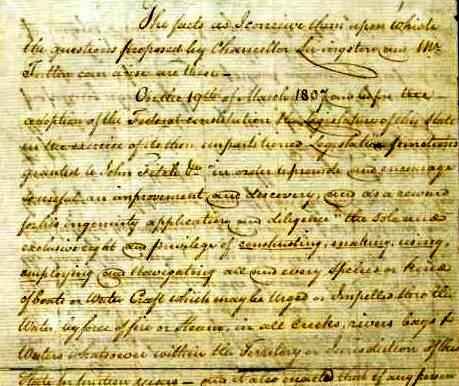 The facts as I conceive them upon which
the questions proposed by Chancellor Livingston and Mr
Fulton can arise are these —
On the 19th of March 1807 and before the
adoption of the Federal constitution the Legislature of this State
in the exercise of its then unpartitioned Legislative functions
granted to John Fitch "in order to promote and encourage
so useful an improvement and discovery, and as a reward
for his ingenuity application and diligence" the sole and
exclusive right and privilege of constructing, making, using,
employing and Navigating all and every Species or Kind
of boats or Water Craft which may be Urged or Impelled thro the
Water by force of fire or Steam, in all Creeks, rivers bays &
Waters whatsoever within the Territory or Jurisdiction of this
State for fourteen years — and it also enacted that if any person